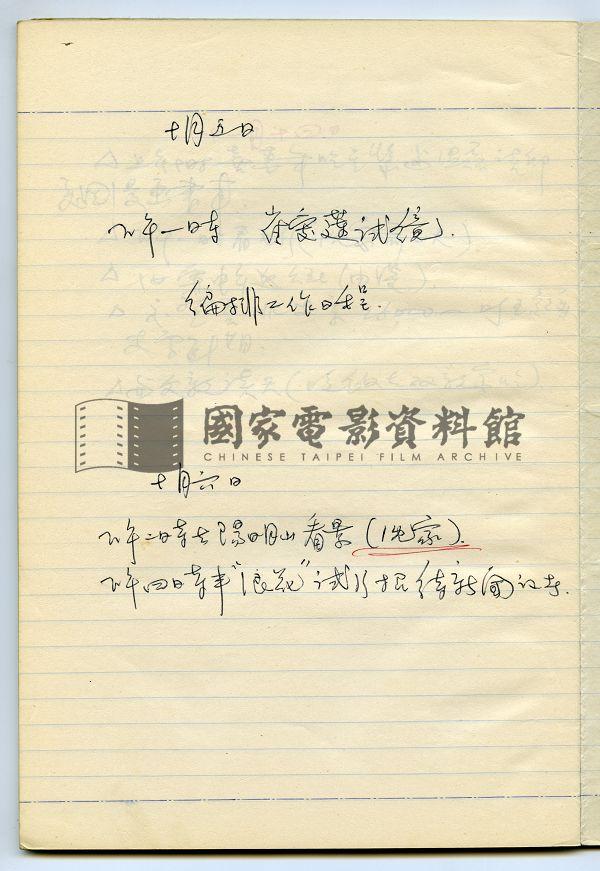 十月五日
下午一時 在電 試鏡.
編排工作日程.
國家電影資料館
CHINESE TAIPEI FILM ARCHIVE
十月六日
下午二時去陽明山看景(佻家).
下午四時半"浪花"試片招待新聞記者.